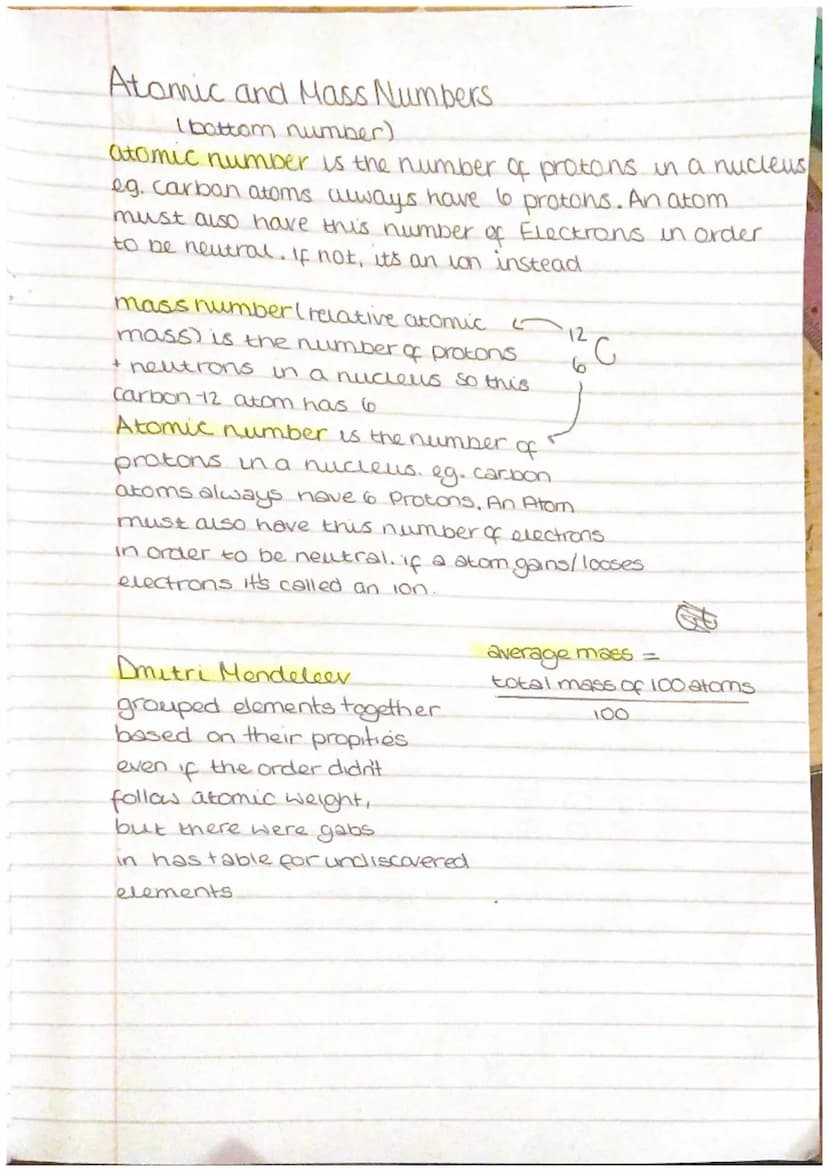 Atomic and Mass Numbers
(bottom number)
atomic number is the number of protons in a nucleus
eg. carbon atoms always have 6 protons. An atom
must also have this number of Electrons in order
to be neutral. If not, its an ion instead
mass number (relative atomic
mass) is the number of protons
+ neutrons in a nucleus so this
carbon-12 atom has 6
12
6 C
Atomic number is the number of
protons in a nucleus. eg. carbon
atoms always have 6 Protons. An Atom
must also have this number of electrons
in order to be neutral. if a atom gains/looses
electrons it's called an ion.
average mass =
total mass of 100 atoms
100
Dmitri Mendeleev
grouped elements together
based on their propities
even if the order didn't
follow atomic weight,
but there were gabs
in has table for undiscovered
elements